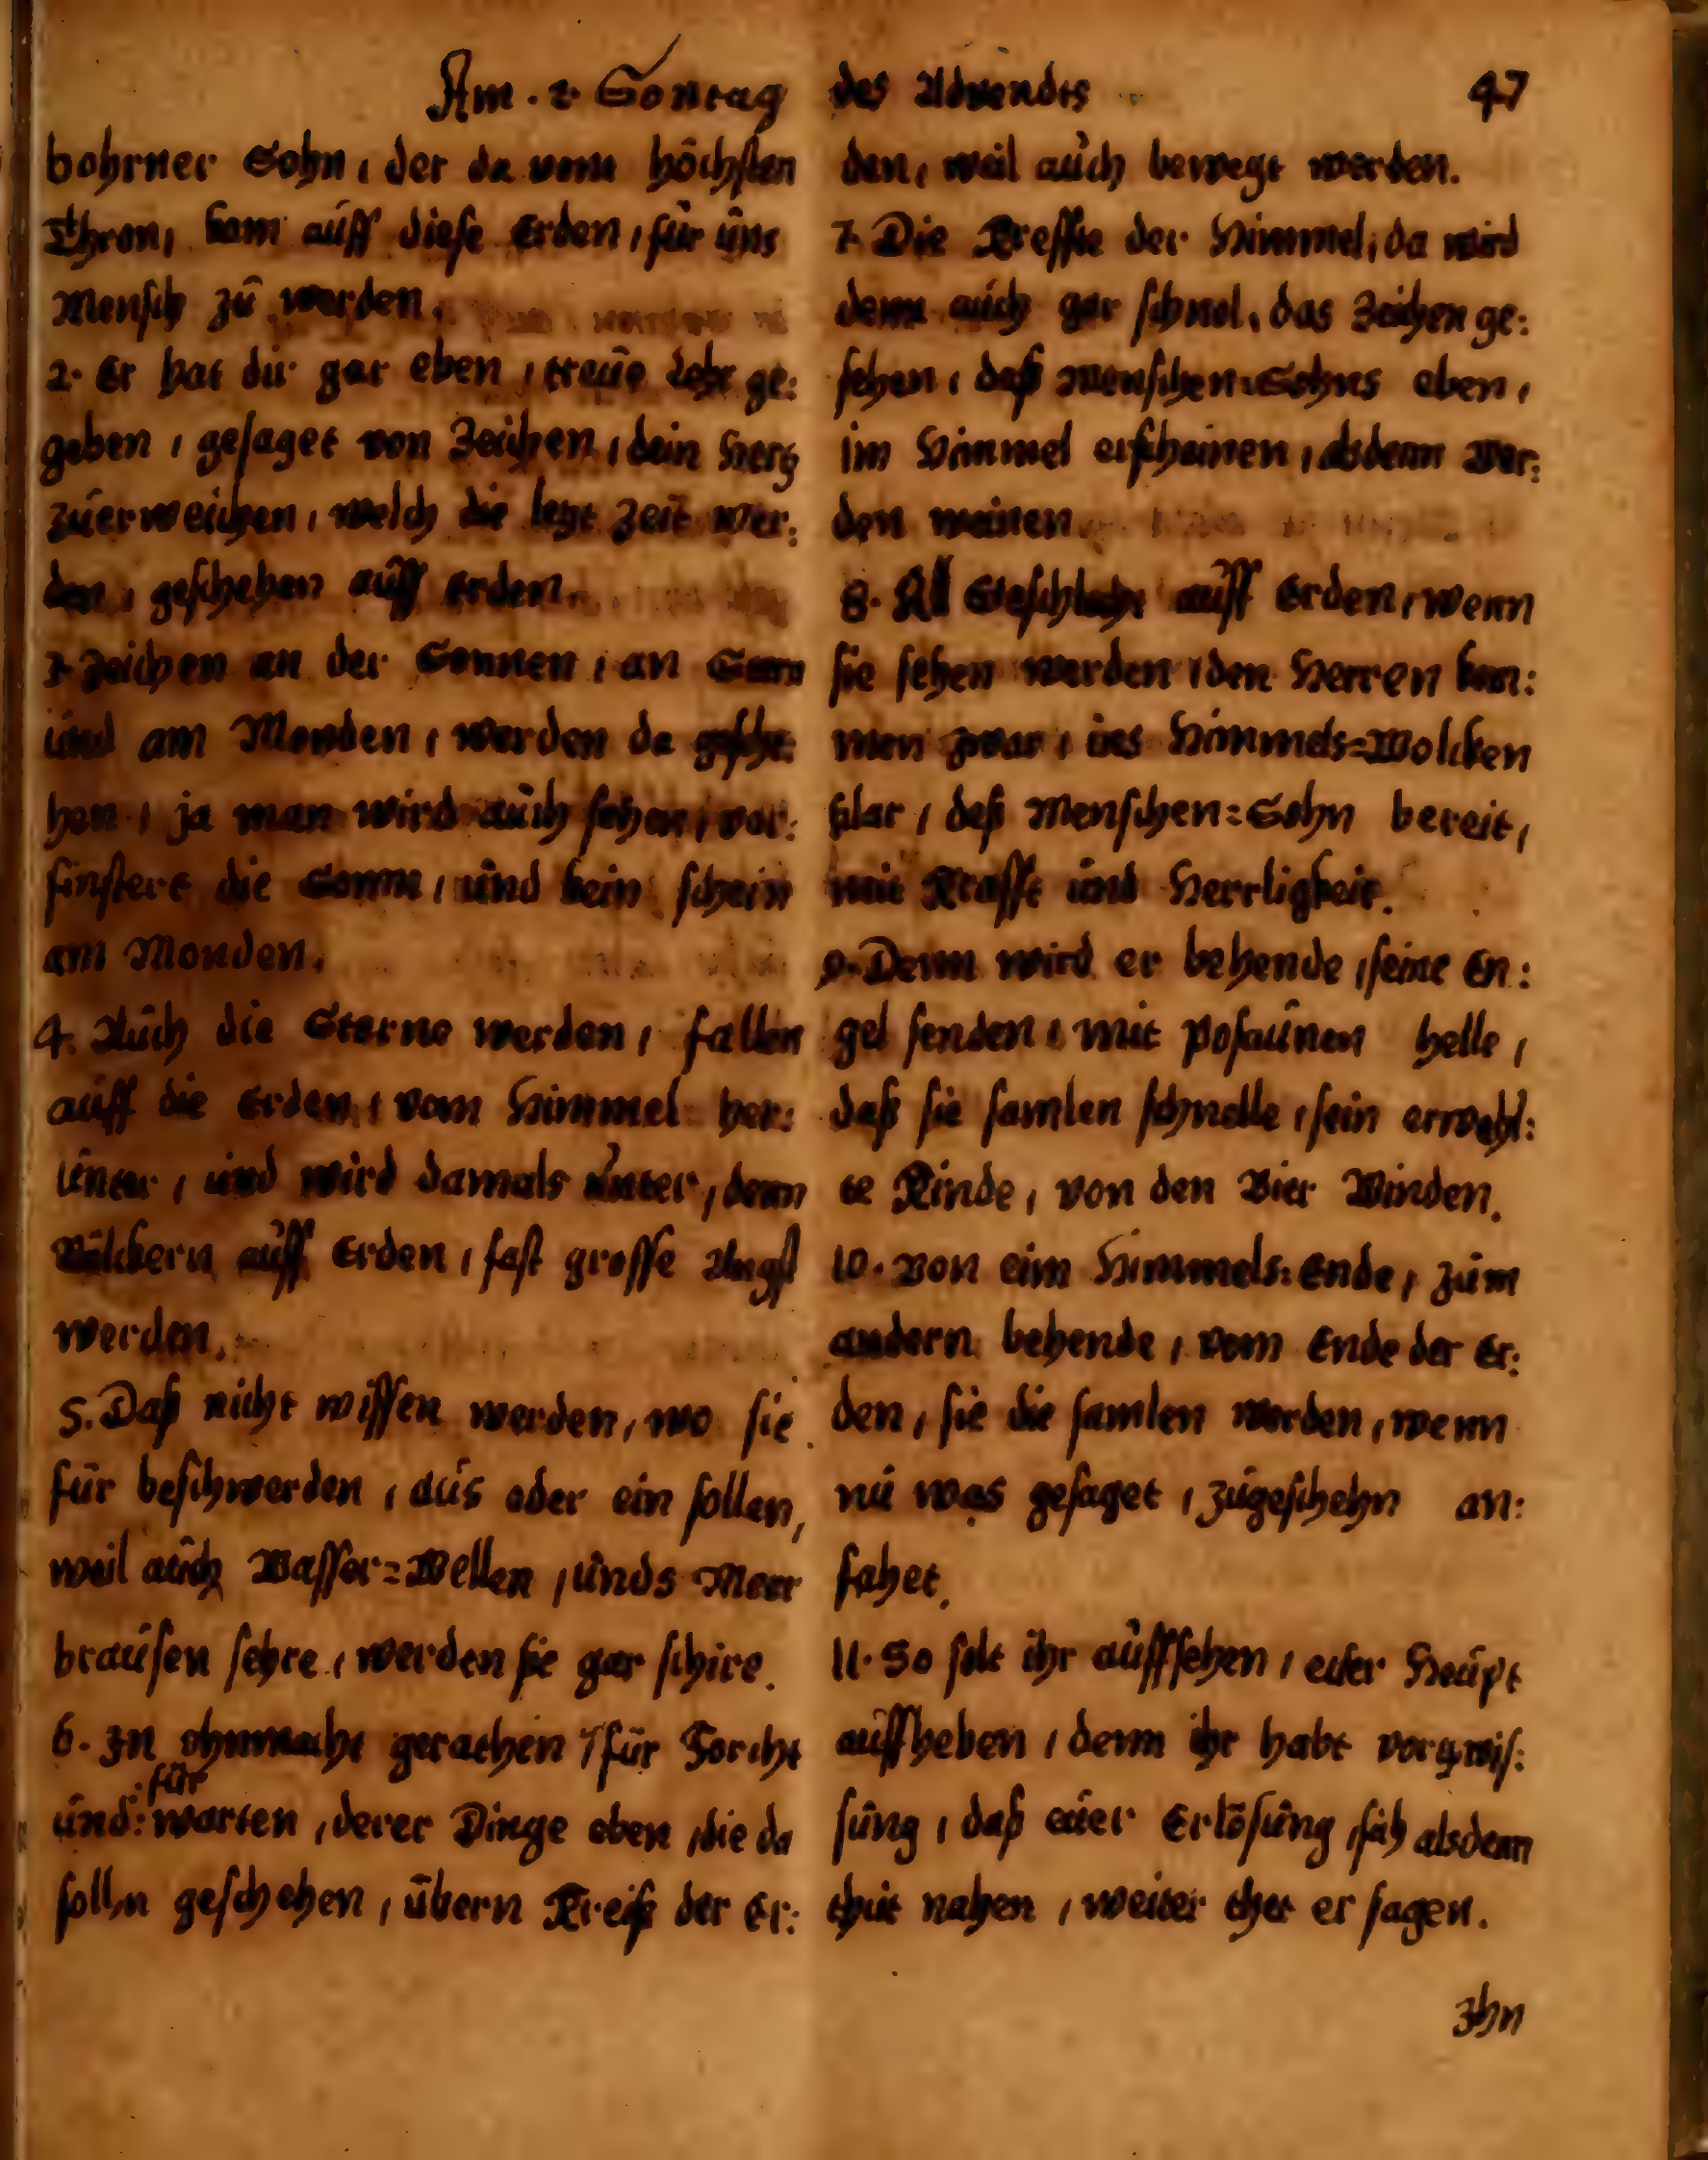 Am. 2 Sontag des Advendts 47
bohrner Sohn, der da vom höchsten
Thron, kam auff diese Erden, für uns
Mensch zu werden.
2. Er hat dir gar eben, treue Lehr ge:
geben, gesaget von Zeichen, dein Hertz
zuerweichen, welch die letzt Zeit wer:
den, geschehen auff Erden.
3. Zeichen an der Sonnen, an Stern
und am Monden, werden da gesche:
hen, ja man wird auch sehen, vor:
finstert die Sonne, und kein schein
am Monden.
4. Auch die Sterne werden, fallen
auff die Erden, vom Himmel her:
unter, und wird damals unter, denn
Völckern auff Erden, fast grosse Angst
werden.
5. Daß nicht wissen werden, wo sie
für beschwerden, aus oder ein sollen,
weil auch Wasser=Wellen, unds Meer
brausen sehre, werden sie gar schire.
6. In ohnmacht gerathen, für Forcht
und: für warten, derer Dinge eben, die da
solln geschehen, übern Kreiß der Er:
den, weil auch bewegt werden.
7. Die Kreffte der Himmel, da wird
denn auch gar schnel, das Zeichen ge:
sehen, daß Menschen=Sohns eben,
im Himmel erscheinen, alsdenn wer:
den weinen
8. All Geschlecht auff Erden, wenn
sie sehen werden, den Herren kom:
men zwar, ins Himmels=Wolcken
klar, deß Menschen=Sohn bereit,
mit Krafft und Herrligkeit.
9. Denn wird er behende, seine En:
gel senden, mit Posaunen helle,
daß sie samlen schnelle, sein erwehl:
te Kinde, von den Vier Winden.
10. Von eim Himmels=Ende, zum
andern behende, vom Ende der Er:
den, sie die samlen werden, wenn
nu was gesaget, zugeschehn an:
fahet.
11. So solt ihr auffsehen, euer Heupt
auffheben, denn ihr habt vorgwis:
sung, daß euer Erlösung, sich alsdenn
thut nahen, weiter thet er sagen.
Ihn